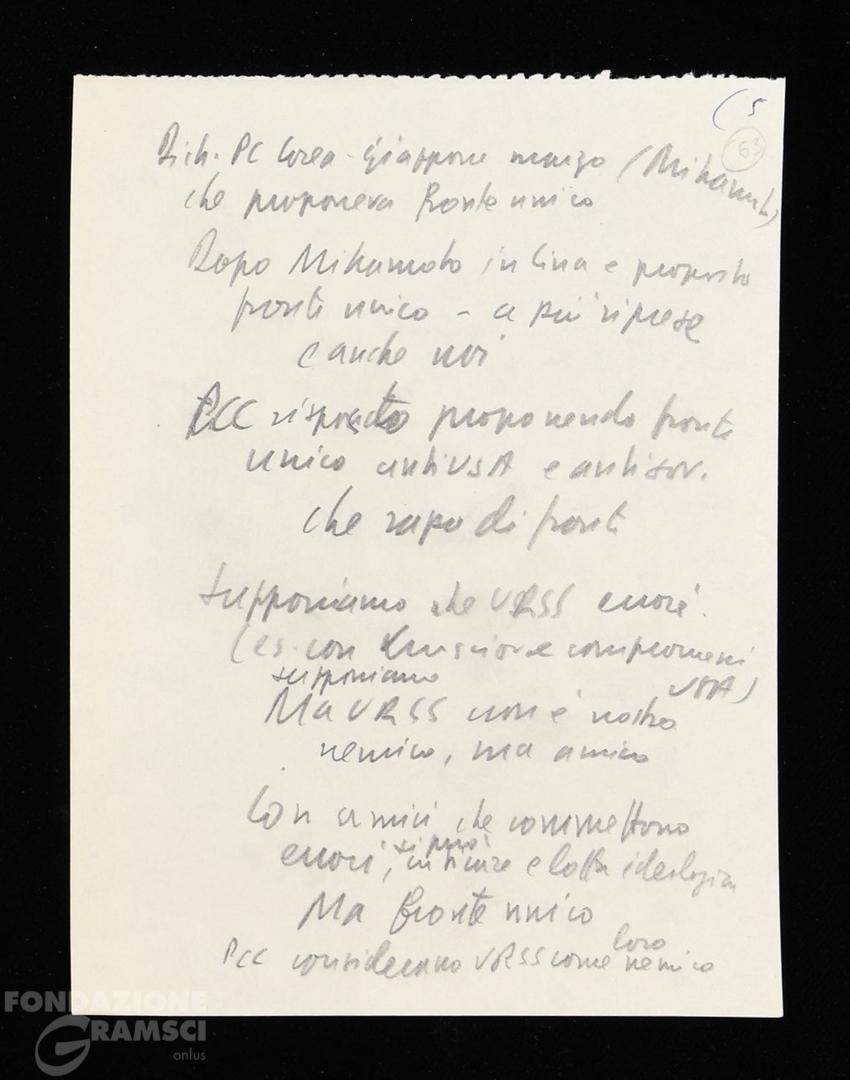 (5
63
Dich. PC Corea-Giappone marzo (Mikamoto)
che proponeva fronte unico
Dopo Mikamoto in Cina e proposto
fronte unico - a più riprese
e anche noi
PCC risposto proponendo fronte
unico antiUSA e antisov.
che di fronte
supponiamo che URSS errori
(es. con Krusciov e compromessi
supponiamo USA)
Ma URSS non è nostro
nemico, ma amico
Con amici che commettono
errori, si può criticare e lotta ideologica
Ma fronte unico
PCC considerano URSS come loro nemico
FONDAZIONE
GRAMSCI
onlus